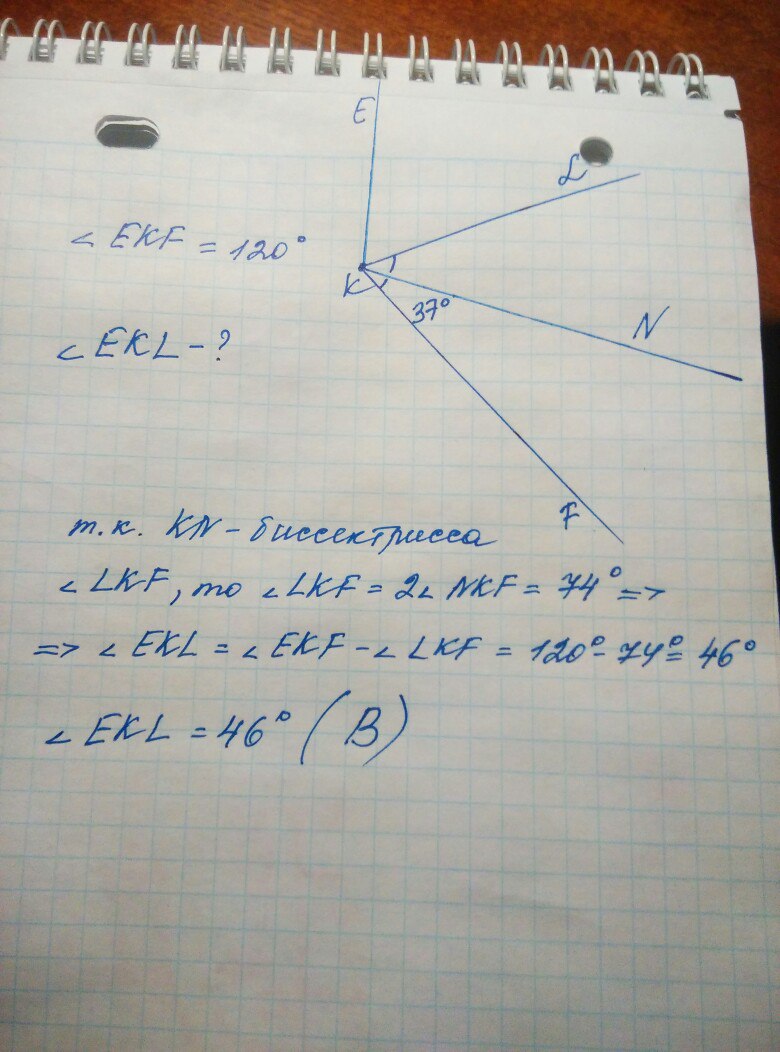 E
L
∠ EKF = 120°
K
37°
N
∠ EKL - ?
F
т.к. KN - биссектрисса
∠ LKF, то ∠ LKF = 2∠ NKF = 74° =>
=> ∠ EKL = ∠ EKF - ∠ LKF = 120° - 74° = 46°
∠ EKL = 46° (B)